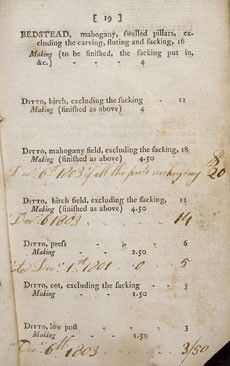 [ 19 ]
BEDSTEAD, mahogany, swelled pillars, ex-
cluding the carving, fluting and sacking, 16
Making (to be finished, the sacking put in,
&c.) - - 4
DITTO, birch, excluding the sacking - 12
Making (finished as above) 4
DITTO, mahogany field, excluding the sacking, 18
Making (finished as above) 4.50
Dec. 6th 1803 if all the posts mahogany 20
DITTO, birch field, excluding the sacking, 12
Making (finished as above) 4.50
Dec 6 1803 14
DITTO, press - - 6
Making - - 2.50
Dec. 1st. 1801 - 0 5
DITTO, cot, excluding the sacking - - 3
Making - - 1.50
DITTO, low post - - 3
Making - - 1.50
Dec. 6th 1803 - 3/50